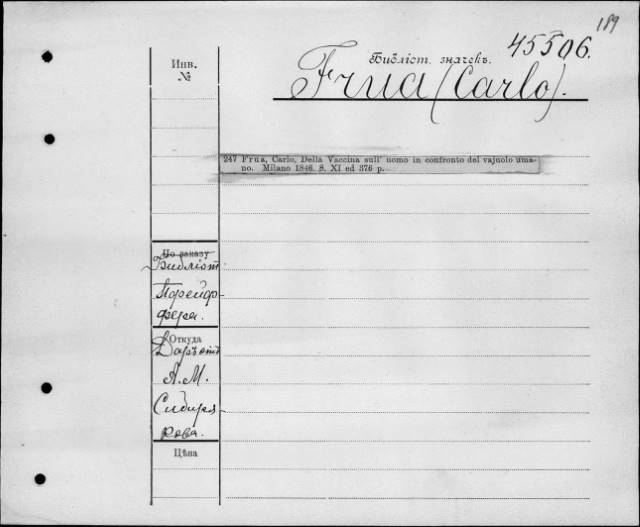 189
45506.
Инв.
№
Библіот. значекъ.
Frua (Carlo).
247 Frua, Carlo, Della Vaccina sull' uomo in confronto del vajuolo uma-
no. Milano 1846. 8. XI ed 376 p.
По заказу
Библіот.
Пфейф-
фера.
Откуда
Даръ отъ
А. М.
Сибиря-
кова.
Цѣна